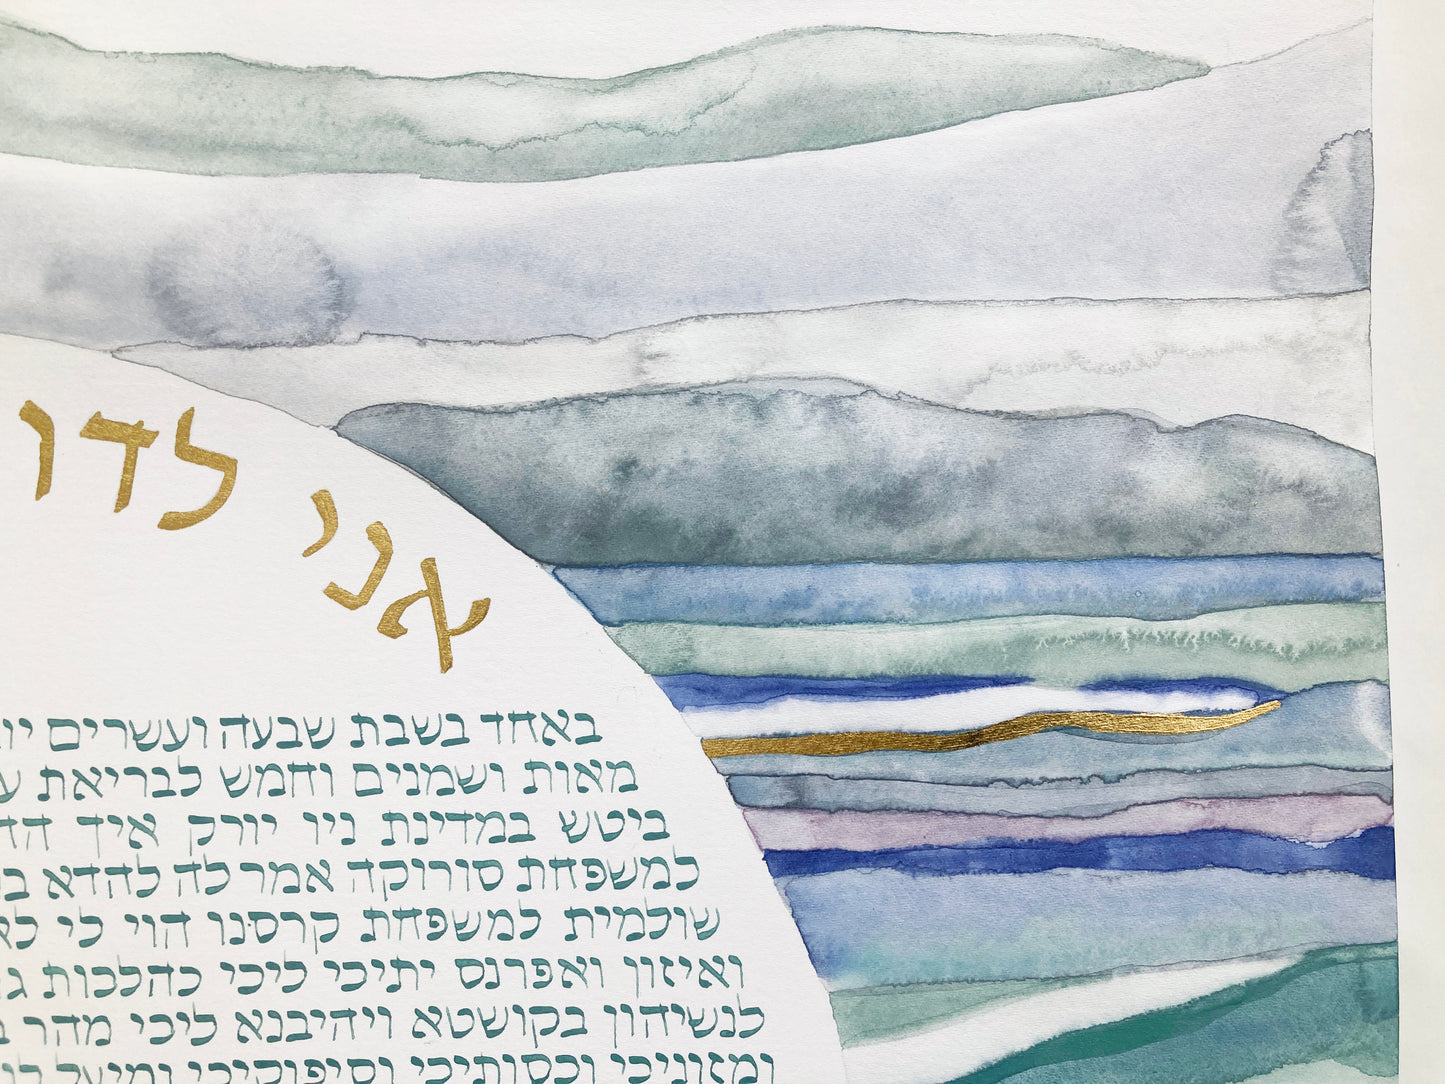 אני לדו
באחד בשבת שבעה ועשרים
מאות ושמנים וחמש לבריאת
ביטש במדינת ניו יורק איך
למשפחת סורוקה אמר לה להדא
שולמית למשפחת קרסנו הוי לי
ואיזון ואפרנס יתיכי ליכי כהלכות
לנשיהון בקושטא ויהיבנא ליכי מהר
ומזוניכי וכסותיכי וסיפוקיכי ומיעל